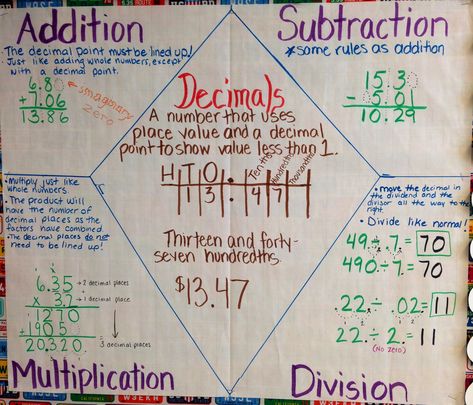 Addition
The decimal point must be lined up!
· Just like adding whole numbers, except
with a decimal point.
6.80
+7.06
13.86
imaginary
zero
Subtraction
*some rules as addition
15.30
- 5.01
10.29
Decimals
A number that uses
place value and a decimal
point to show value less than 1.
H T O . Tenths Hundredths Thousandths
1 3 . 4 7
Thirteen and forty-
seven hundredths
$13.47
· Multiply just like
whole numbers.
· The product will
have the number of
decimal places as the
factors have combined.
· The decimal places do not
need to be lined up!
6.35 → 2 decimal places
x 3.2 → 1 decimal place
1270
+1905
20320 3 decimal places
Multiplication
• move the decimal in
the dividend and the
divisor all the way to the
right.
• Divide like normal!
49.÷.7.= 70
490.÷ 7.= 70
.22.÷ .02.= 11
22.÷ 2.= 11
(NO ZERO)
Division